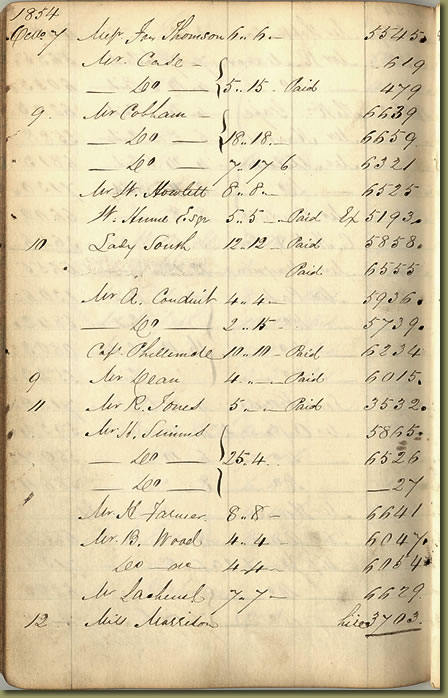 1854
7 Jas Thomson 6 „ 6 „ – 5545
Mr. Case – 619
– Do – 5 „ 15 „ Paid 479
9 Mr Cobham – 6639
– Do – 18 „ 18 „ – 6659
– Do – 7 „ 17 6 6321
Mr W. Howlett 8 „ 8 „ – 6525
W. Esqr 5 „ 5 – Paid Ex 5193
10 Lady South 12 „ 12 – Paid 5858
„ Paid 6555
Mr A. Conduit 4 „ 4 – 5936
– Do – 2 „ 15 5739
Capt Phillimore 10 „ 10 – Paid 6234
9 Mr Dean 4 „ – „ – Paid 6015
11 Mr R. Jones 5 „ – „ Paid 3532
Mr H. 5865
– Do – 25 „ 4 „ 6526
– Do – – 27
Mr H Farmer 8 „ 8 – 6641
Mr. B. Wood 4 „ 4 – 6047
Do – do 4 „ 4 – 6054
Mr 7 „ 7 – 6629
12 Miss Morrison hire 3703